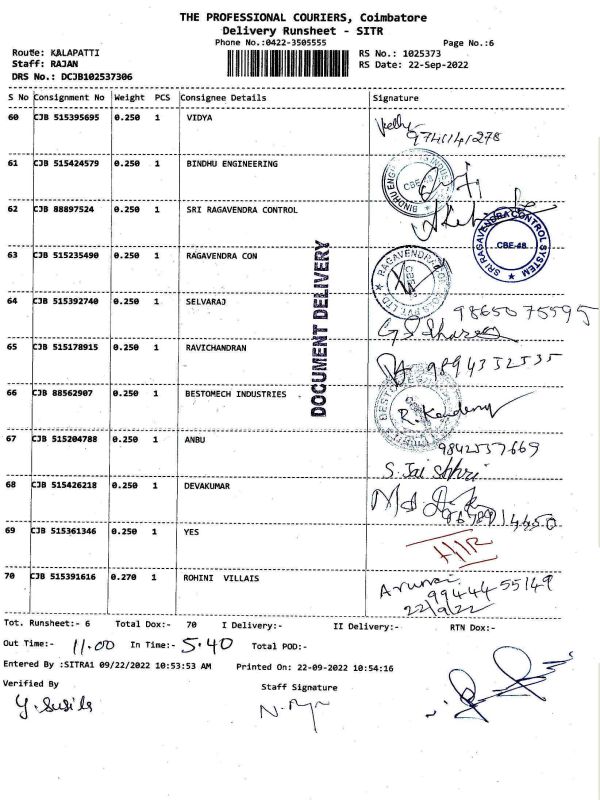 THE PROFESSIONAL COURIERS, Coimbatore
Delivery Runsheet - SITR
Phone No.:0422-3505555 Page No.:6
Route: KALAPATTI RS No.: 1025373
Staff: RAJAN RS Date: 22-Sep-2022
DRS No.: DCJB102537306
S No Consignment No Weight PCS Consignee Details Signature
60 CJB 515395695 0.250 1 VIDYA
61 CJB 515424579 0.250 1 BINDHU ENGINEERING
CBE-48
62 CJB 88897524 0.250 1 SRI RAGAVENDRA CONTROL
SRI RAGAVENDRA CONTROL SYSTEM
CBE-48
63 CJB 515235490 0.250 1 RAGAVENDRA CON
DOCUMENT DELIVERY
64 CJB 515392740 0.250 1 SELVARAJ 9865075595
65 CJB 515178915 0.250 1 RAVICHANDRAN 9894332535
66 CJB 88562907 0.250 1 BESTOMECH INDUSTRIES
67 CJB 515204788 0.250 1 ANBU 9842557669
S. Jai Shhri
68 CJB 515426218 0.250 1 DEVAKUMAR
69 CJB 515361346 0.250 1 YES
70 CJB 515391616 0.270 1 ROHINI VILLAIS
99444 55149
22/9/22
Tot. Runsheet:- 6 Total Dox:- 70 I Delivery:- II Delivery:- RTN Dox:-
Out Time:- 11.00 In Time:- 5.40 Total POD:-
Entered By :SITRA1 09/22/2022 10:53:53 AM Printed On: 22-09-2022 10:54:16
Verified By Staff Signature
Y. Susila